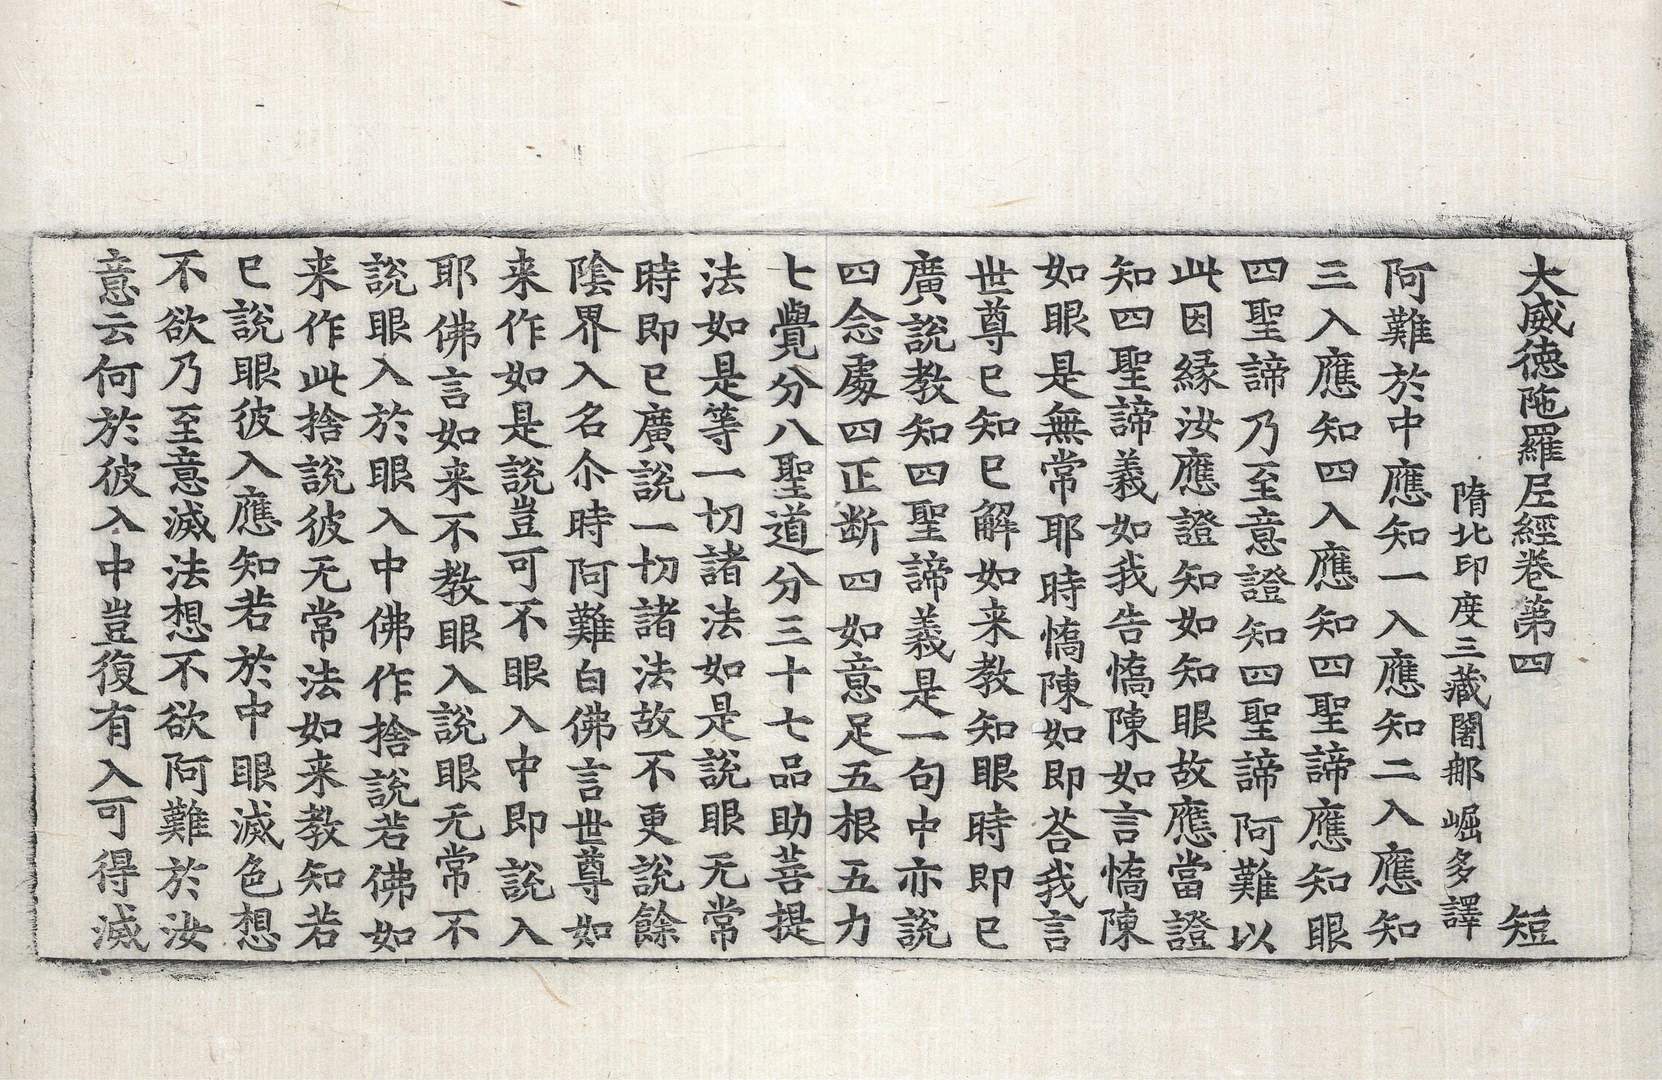 大威德陁羅尼經卷第四 短
隋北印度三藏闍那崛多譯
阿難於中應知一入應知二入應知
三入應知四入應知四聖諦應知眼
四聖諦乃至意證知四聖諦阿難以
此因緣汝應證知如知眼故應當證
知四聖諦義如我告憍陳如言憍陳
如眼是無常耶時憍陳如即荅我言
世尊已知已解如来教知眼時即已
廣說教知四聖諦義是一句中亦說
四念處四正断四如意足五根五力
七覺分八聖道分三十七品助菩提
法如是等一切諸法如是說眼无常
時即已廣說一切諸法故不更說餘
陰界入名尒時阿難白佛言世尊如
来作如是說豈可不眼入中即說入
耶佛言如来不教眼入說眼无常不
說眼入於眼入中佛作捨說若佛如
来作此捨說彼无常法如来教知若
已說眼彼入應知若於中眼滅色想
不欲乃至意滅法想不欲阿難於汝
意云何於彼入中豈復有入可得滅